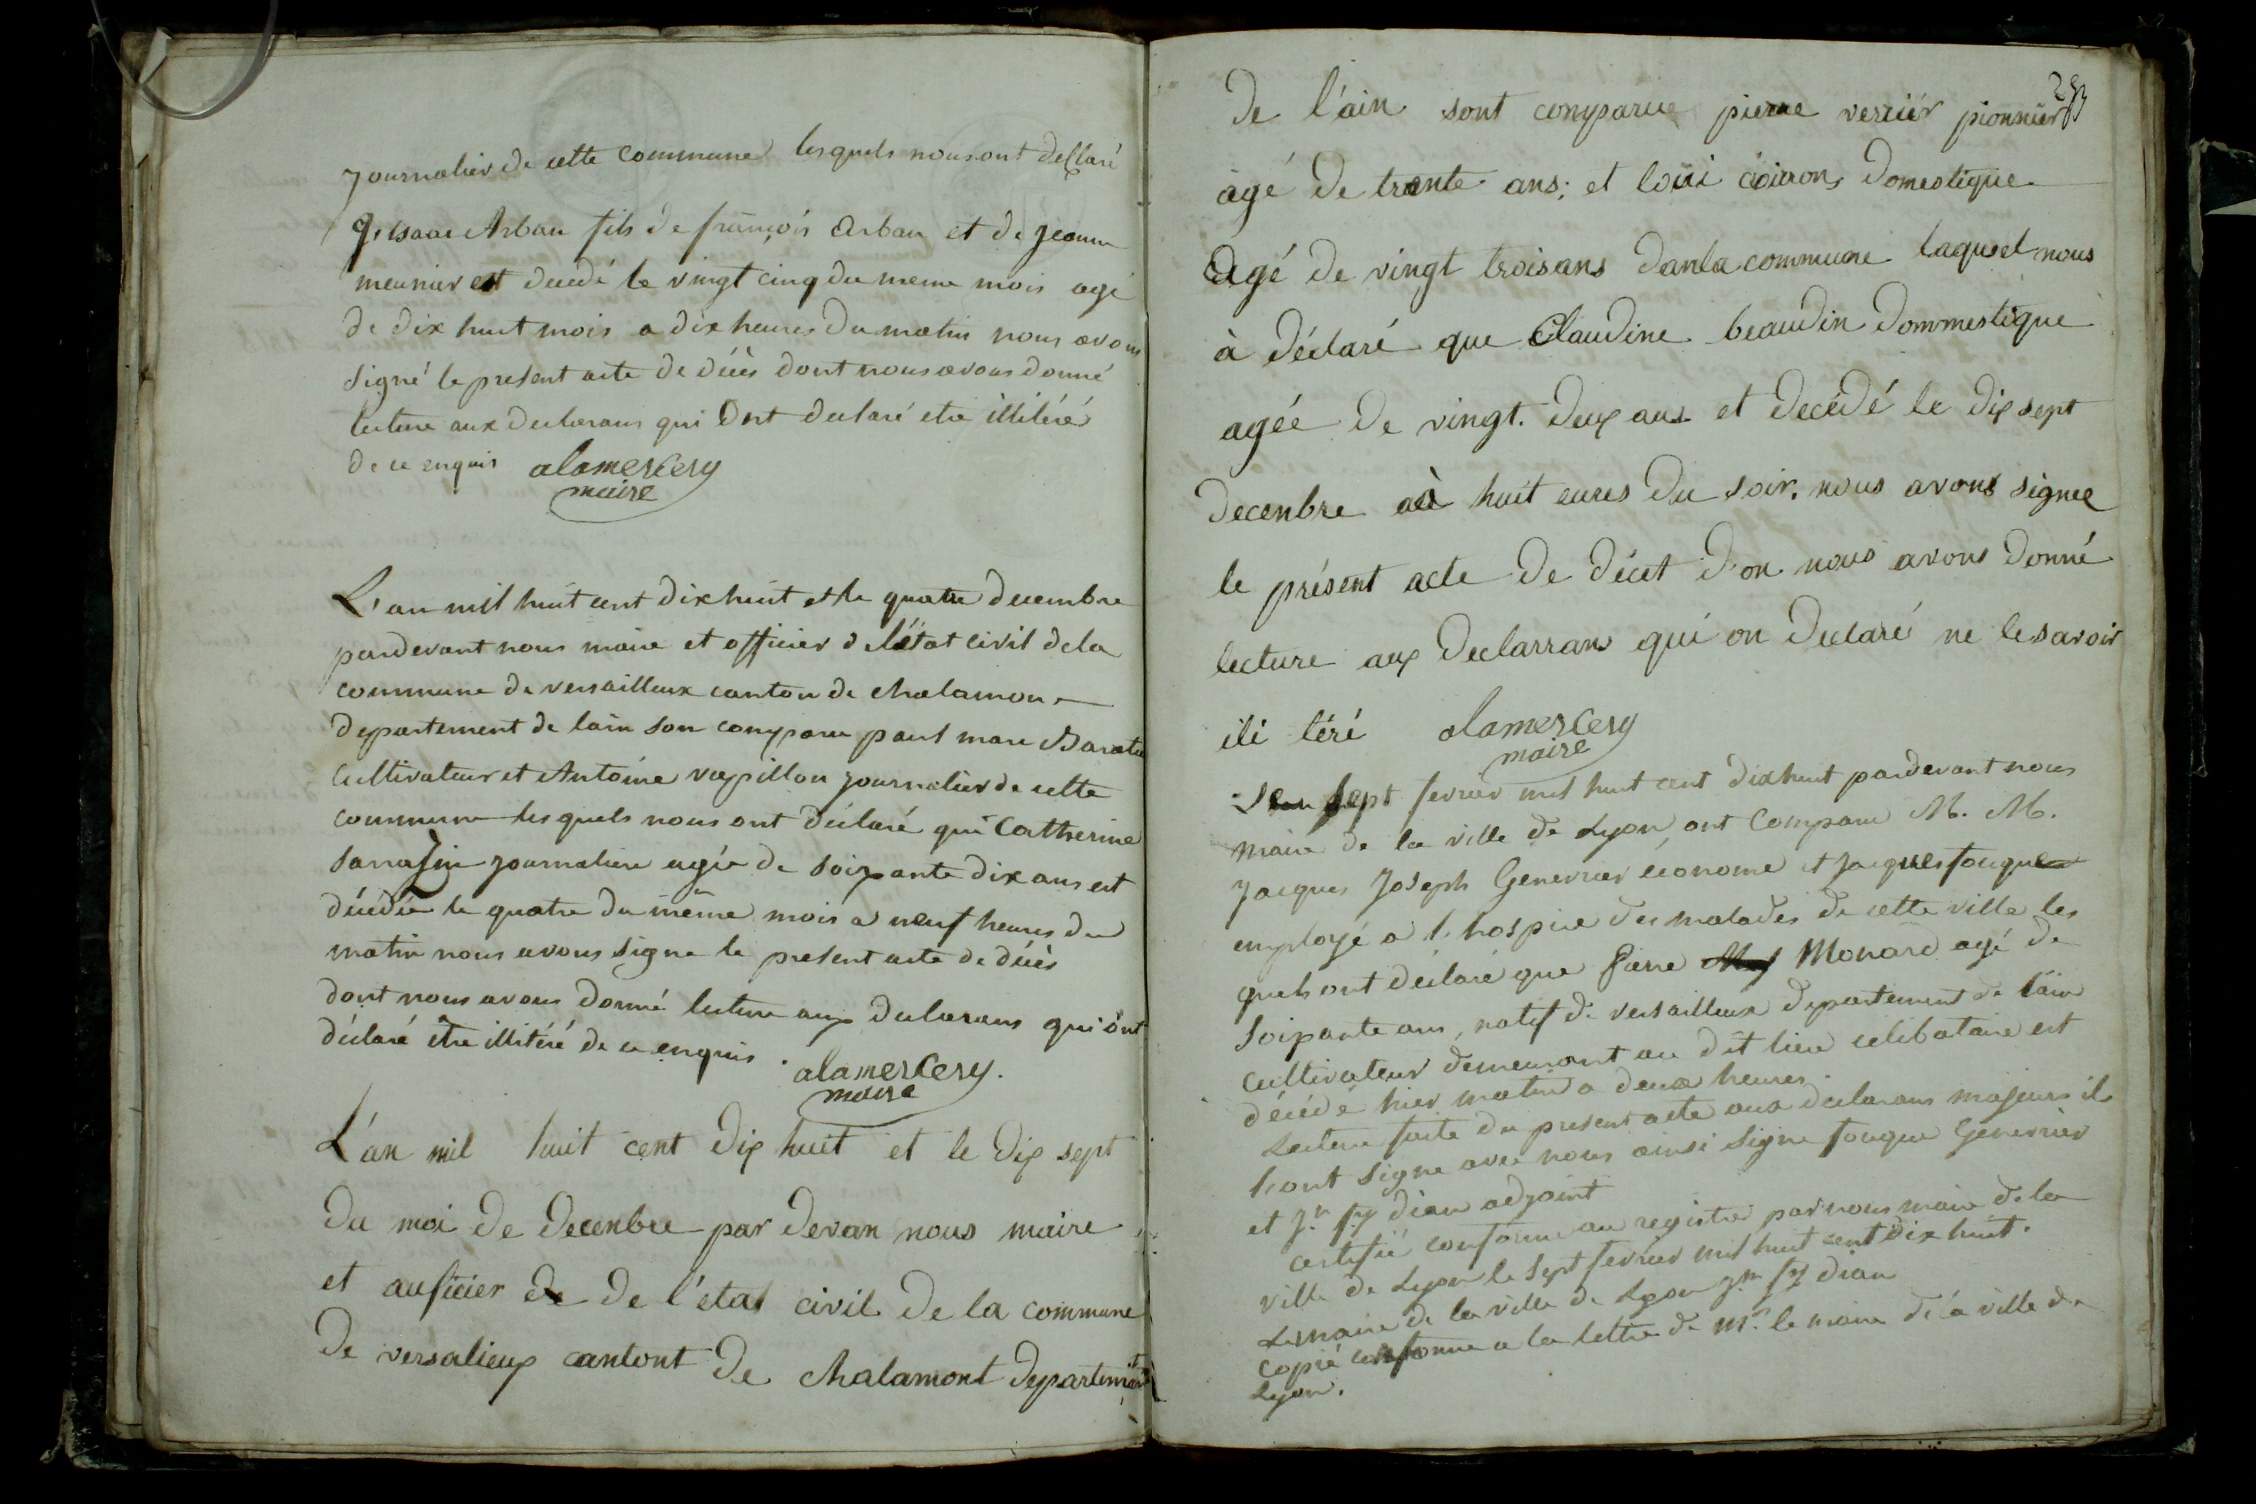 journalier de cette commune lesquels nous ont declaré
q. isaac Arban fils de françois Arban et de jeanne
meunier est decedé le vingt cinq du meme mois agé
de dix huit mois a dix heures du matin nous avons
signé le present acte de décès dont nous avons donné
lecture aux declarans qui ont declaré etre illitéré
de ce enquis alamercery
maire
L'an mil huit cent dix huit et le quatre decembre
pardevant nous maire et officier de l'état civil de la
commune de versailleux canton de chalamon
departement de lain son comparu paul marc
cultivateur et Antoine vapillon journalier de cette
commune lesquels nous ont déclaré qui Catherine
sarrazin journaliere agée de soixante dix ans est
décédée le quatre du même mois a neuf heures du
matin nous avons signe le present acte de décès
dont nous avons donné lecture aux declarans qui ont
déclaré être illitéré de ce enquis . alamercery.
maire
L'an mil huit cent dix huit et le dix sept
du moi de decenbre par devan nous maire
et auficier de de l'état civil de la commune
de versalieux cantont de chalamont departement
de l'ain sont comparue pierre verciér pionnier
àgé de trante ans; et loüi domestique
Agé de vingt trois ans danla commune laquel nous
à déclaré que Claudine beaudin dommestique
agéé de vingt. deux ans et decédé le dix sept
decenbre aà huit eures du soir. nous avons signee
le présent acte de décet d'on nous avons donné
lecture aux declarrans qui on declaré ne le savoir
ili téré alamercery
maire
sept fevrier mil huit cent dix huit pardevant nous
maire de la ville de Lyon, ont comparu M. M.
jacques joseph Genevrier économe et jacques fouque
employé a l'hospice des malades de cette ville les
quels ont déclaré que Piere Monard agé de
soixante ans, natif de versailleux departement de l'ain
cultivateur demeurant au dit lieu celibataire est
décédé hier matin a deux heures.
Lecture faite du present acte aux declarans majeurs ils
l'ont signe avec nous ainsi signe fouque Genevrier
et jn. fs dian adjoint
certifié conforme au registre par nous maire de la
ville de Lyon le sept fevrier mil huit cent dix huit.
Le maire de la ville de Lyon jn fs dian
copié conforme a la lettre de Mr. le maire de la ville de
Lyon.